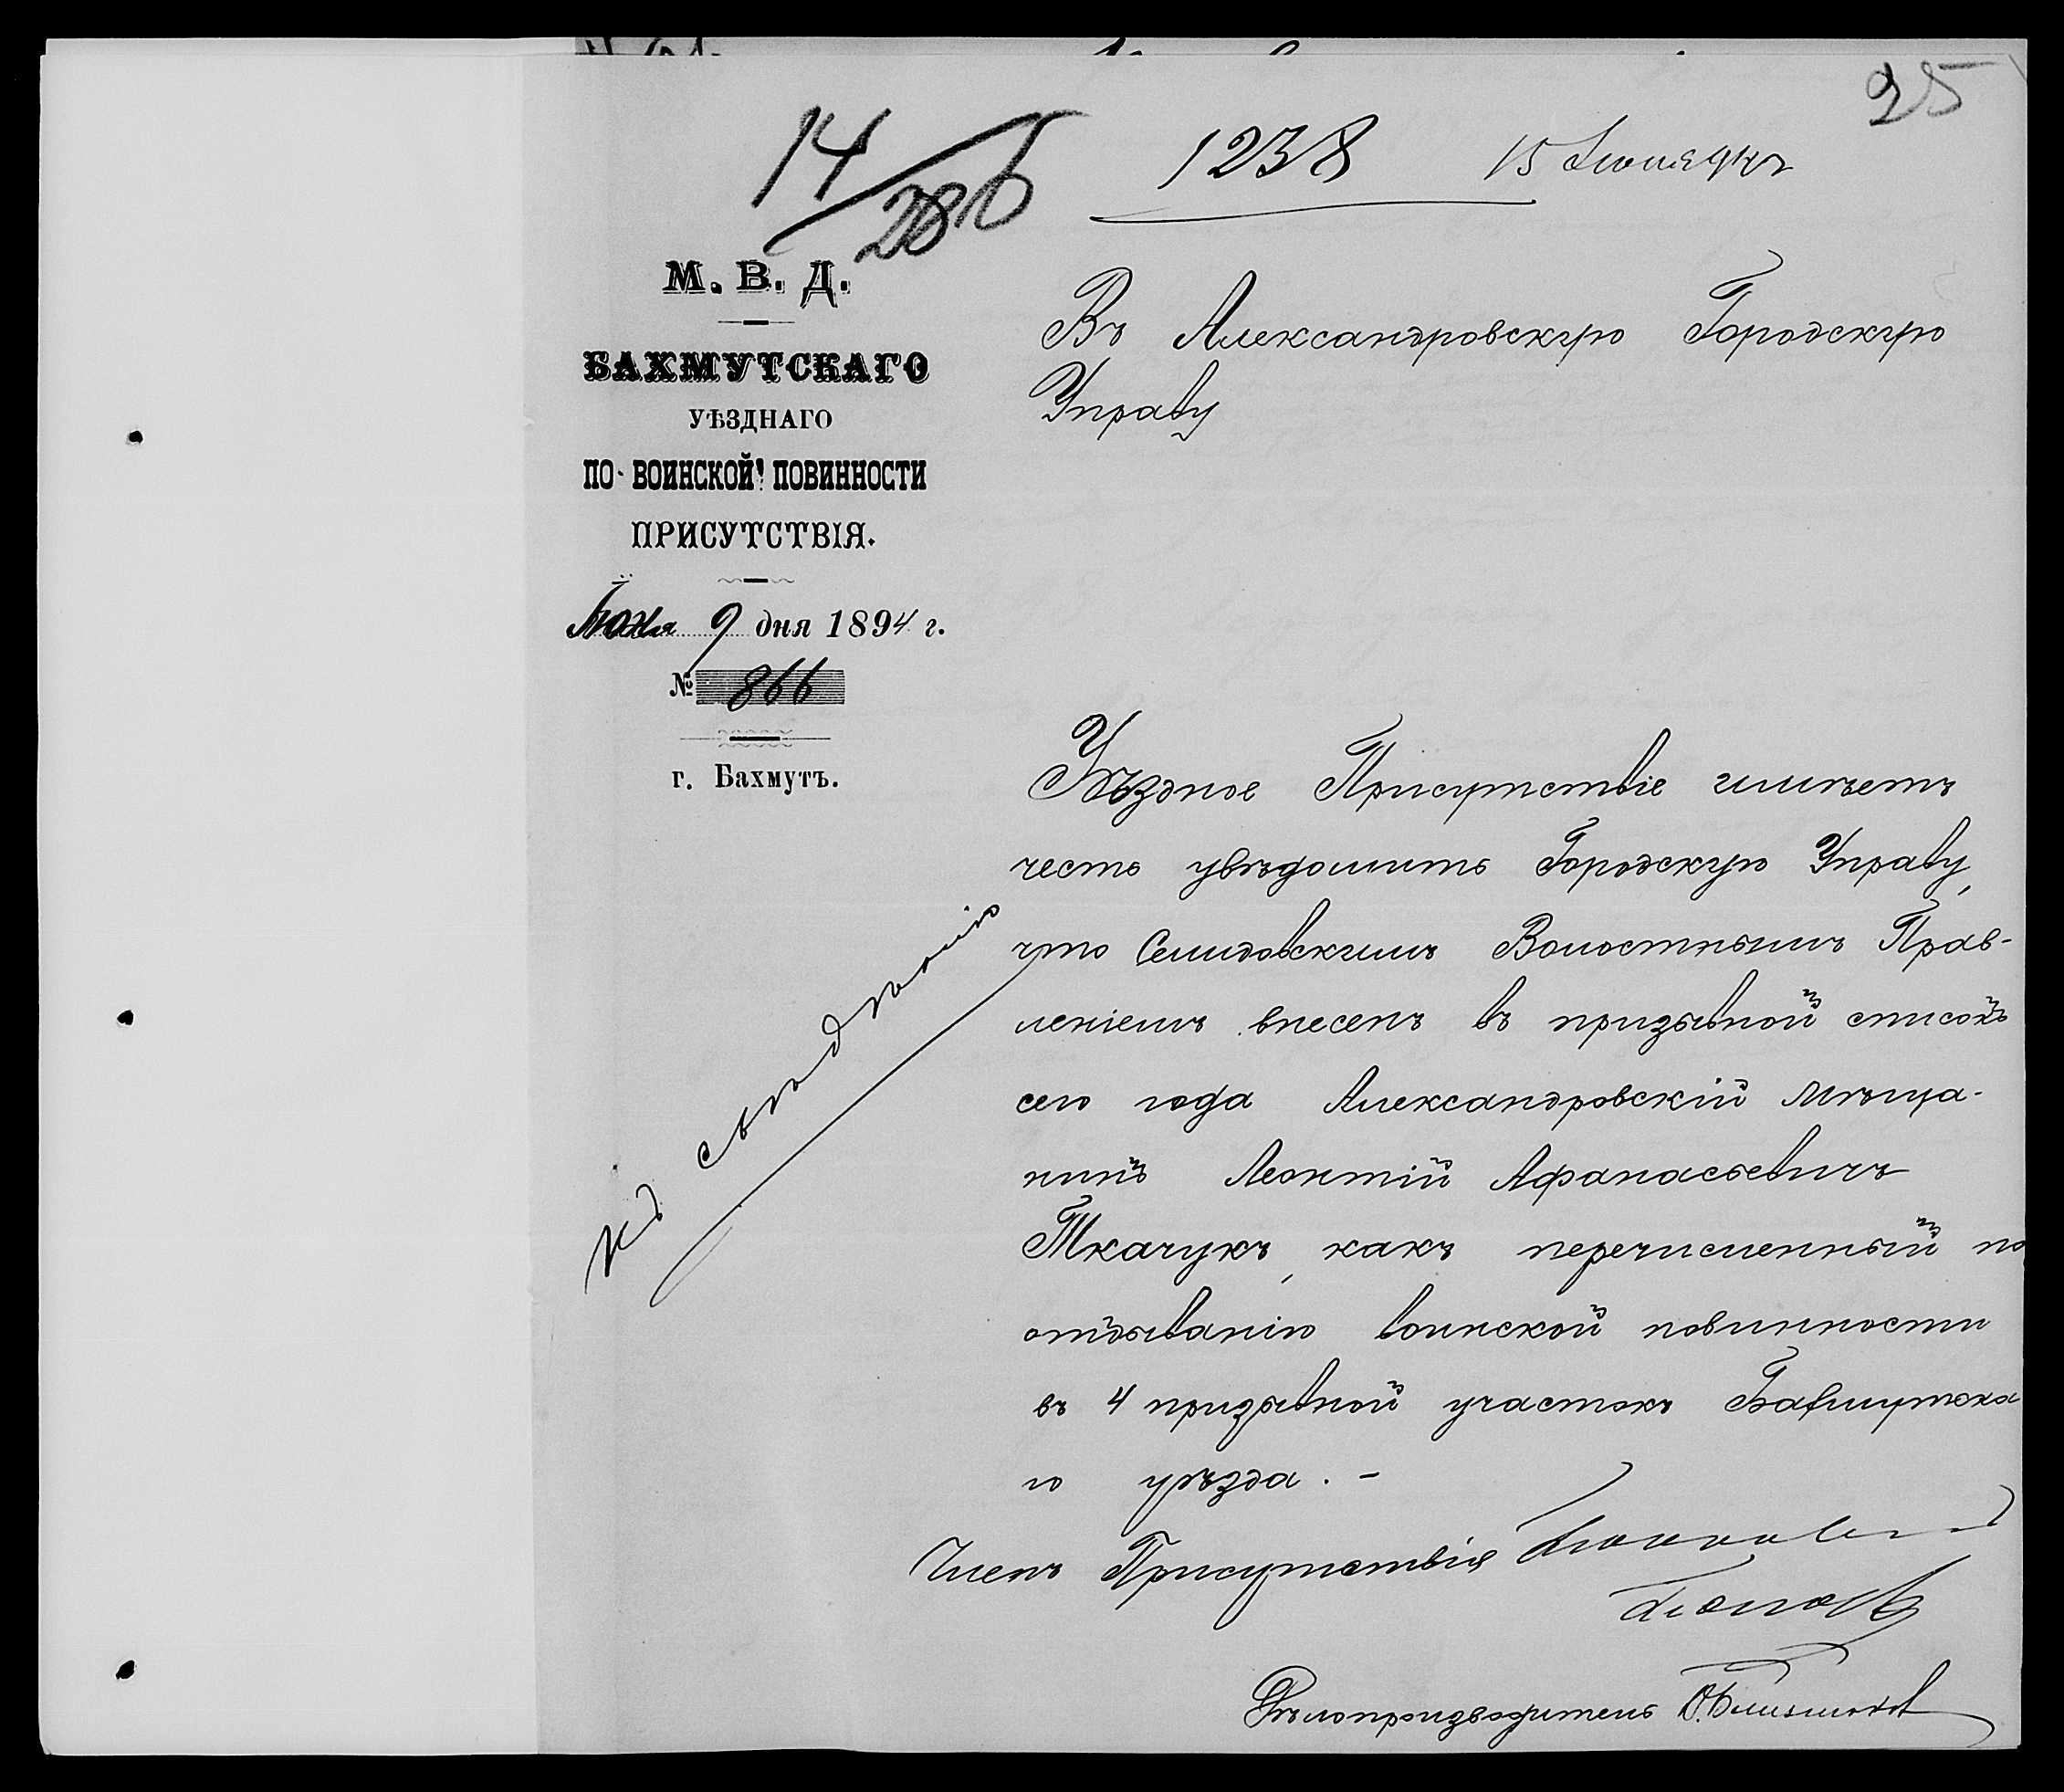 95
14/286
1238 15 Июня 94 г
М. В. Д.
БАХМУТСКАГО
УѢЗДНАГО
ПО ВОИНСКОЙ ПОВИННОСТИ
ПРИСУТСТВІЯ.
Іюня 9 дня 1894 г.
№ 866
г. Бахмутъ.
Въ Александровскую Городскую
Управу
Уѣздное Присутствіе имѣетъ
честь увѣдомить Городскую Управу,
что Семидовскимъ Волостнымъ Прав-
леніемъ внесенъ въ призывной списокъ
сего года Александровскій мѣща-
нинъ Леонтій Афанасьевичъ
Ткачукъ, какъ перечисленный по
отбыванію воинской повинности
въ 4 призывной участокъ Бахмутска
го уѣзда. -
къ свѣдѣнію
Членъ Присутствія
Дѣлопроизводитель